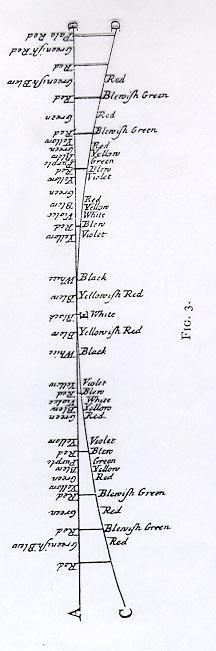 B D
Pale Red
Greeniſh Red
Red
Greeniſh Blew Red
Red Blewiſh Green
Green Red
Red Blewiſh Green
Yellow Red
Green Yellow
Blew Green
Purple Blew
Red Violet
Yellow
Green
Blew Red
Violet Yellow
White
Red Blew
Yellow Violet
White Black
Blew Yellowiſh Red
Black White
Blew Yellowiſh Red
White Black
Yellow Violet
Red Blew
Violet White
Blew Yellow
Green Red
Yellow Violet
Red Blew
Purple Green
Blew Yellow
Green Red
Yellow
Red Blewiſh Green
Green Red
Red Blewiſh Green
Greeniſh Blew Red
Red
A C
FIG. 3.